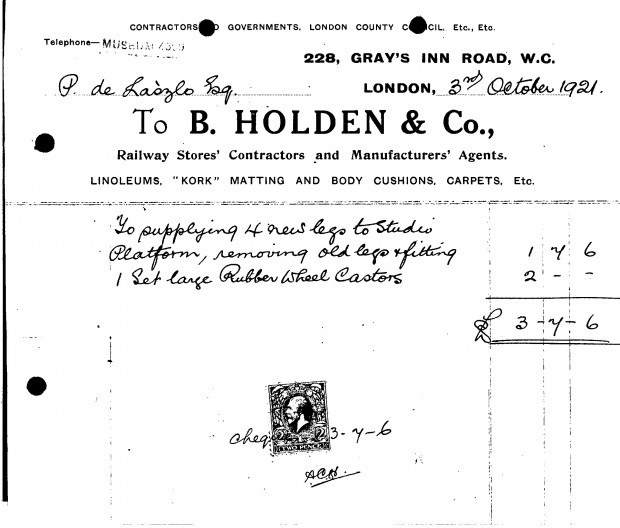 CONTRACTORS GOVERNMENTS, LONDON COUNTY C CIL, Etc., Etc.
Telephone— MUSEUM
228, GRAY'S INN ROAD, W.C.
P. de László Esq. LONDON, 3rd October 1921.
To B. HOLDEN & Co.,
Railway Stores' Contractors and Manufacturers' Agents.
LINOLEUMS, "KORK" MATTING AND BODY CUSHIONS, CARPETS, Etc.
To supplying 4 new legs to Studio
Platform, removing old legs & fitting 1 7 6
1 Set large Rubber Wheel Castors 2 - -
£ 3-7-6
cheq 2 2 3-7-6
TWO PENCE